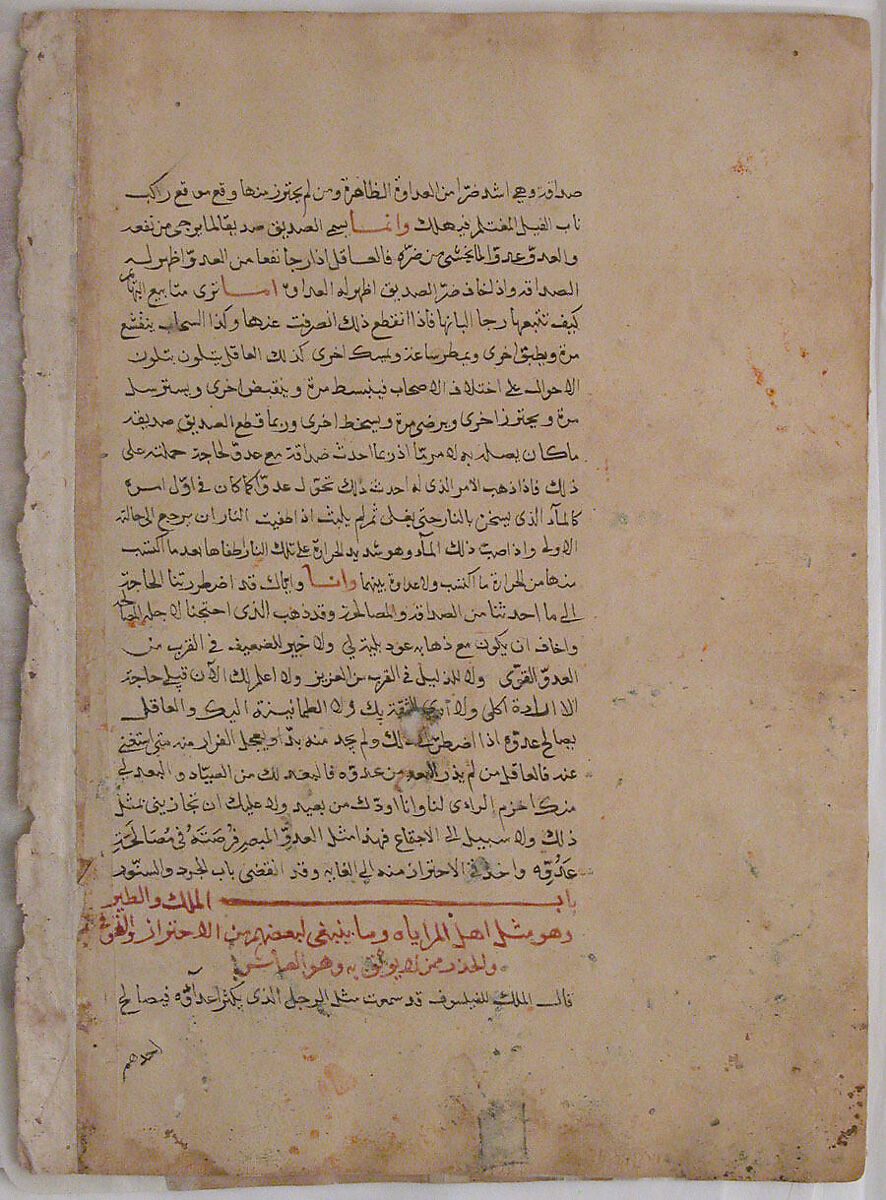 صداقة وهي اشد ضرّا من العداوة الظاهرة ومن لم يحترز منها وقع موقع راكب
ناب الفيل المغتلم فيهلك وانما يسمى الصديق صديقا لما يرجى من نفعه
والعدوّ عدوّا لما يخشى من ضرّه فالعاقل اذا رجا نفعا من العدوّ اظهر له
الصداقة واذا خاف ضرّ الصديق اظهر له العداوة اما ترى متابيع البهائم
كيف تتبعها رجا البانها فاذا انقطع ذلك انصرفت عنها وكذا السحاب ينقشع
مرة ويطبق اخرى ويمطر ساعة ويمسك اخرى كذلك العاقل يتلون بتلون
الاحوال على اختلاف الاصحاب فينبسط مرة وينقبض اخرى ويسترسل
مرة ويحترز اخرى ويرضى مرة ويسخط اخرى وربما قطع الصديق صديقه
ما كان يصله به لا مربما احدث صداقة مع عدوّ لحاجة حملته على
ذلك فاذا ذهب الامر الذي له احدث ذلك تحوّل عدوّا كما كان في اوّل امره
كالمآء الذي يسخن بالنار حتى يغلى ثم لم يلبث اذ اطفيت النار ان يرجع الى حالته
الاولى واذا صب ذلك المآء وهو شديد الحرارة على تلك النار اطفاها بعد ما اكتسب
منها من الحرارة ما اكتسب ولا عداوة بينهما وانا واياك قد اضطررتنا الحاجة
الى ما احدثنا من الصداقة والمصالحة وقد ذهب الذي احتجنا لاجله المصالحة
واخاف ان يكون مع ذهابه عود بلية لي ولا خير للضعيف في القرب من
العدوّ القوّى ولا للذليل في القرب من العزيز ولا اعلم لك الآن قبلي حاجة
الا ارادة اكلى ولا ارى الثقة بك ولا الطمانينة اليك والعاقل
يصالح عدوّه اذا اضطر الى ذلك ولم يجد منه بدّا ويعجل الفرار منه متى استغنى
عنه فالعاقل من لم يذر البعد من عدوّه فالبعد لك من الصيّاد والبعد لي
منك احزم الراى لنا وانا اودك من بعيد ولا عليك ان تجازيني بمثل
ذلك ولا سبيل الى الاجتماع فهذا مثل العدوّ المبصر فرصته في مصالحة
عدوّه واخذ في الاحتراز منه الى الغابه وقد انقضى باب الجرد والسنّور
باب الملك والطير
وهو مثل اهل المراياه وما ينبغي لبعضهم من الاحتراز والخوف
والحذر من لا يوثق به وهو العاشر
قال الملك للفيلسوف قد سمعت مثل الرجل الذي يكثر اعداؤه فيصالح
احدهم